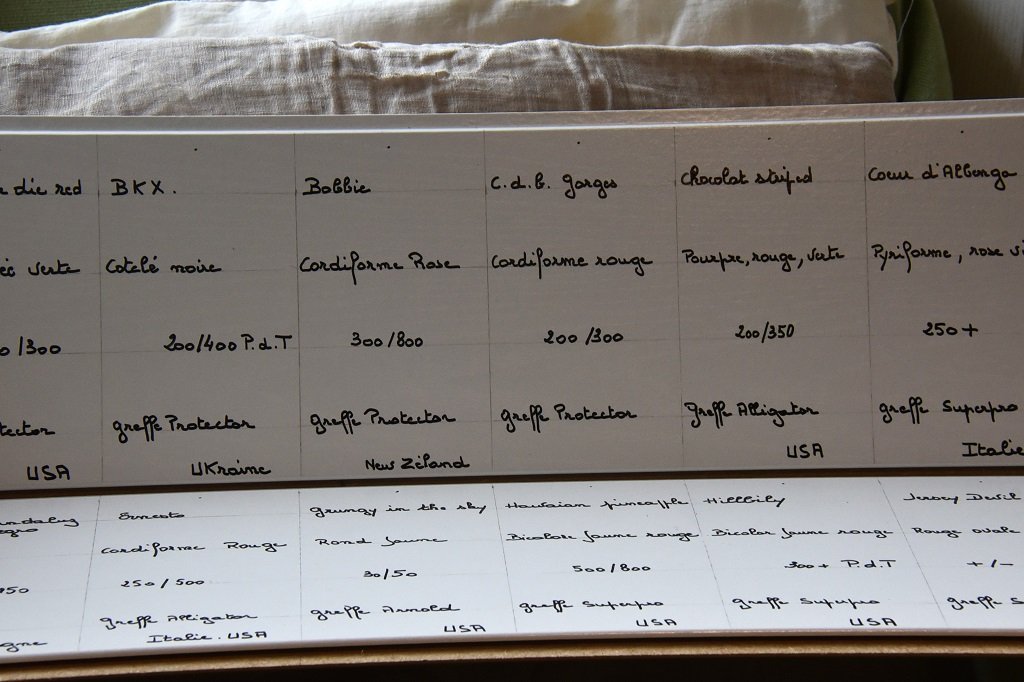 die red
BKX.
Bobbie
C.d.b. Gorges
Chocolat striped
Coeur d'Albenga
verte
Cotelé noire
Cordiforme Rose
Cordiforme rouge
Pourpre, rouge, verte
Pyriforme, rose
/300
200/400 P.d.T
300/800
200/300
200/350
250+
greffe Protector
greffe Protector
greffe Protector
greffe Alligator
greffe Superpro
USA
UKraine
New Zéland
USA
Italie
Ernesto
grungy in the sky
Hawaian pineapple
Hillbily
Jersey Devil
Cordiforme Rouge
Rond Jaune
Bicolore Jaune rouge
Bicolor Jaune rouge
Rouge ovale
250/500
30/50
500/800
300+ P.d.T
+/-
greffe Alligator
greffe Arnold
greffe Superpro
greffe Superpro
greffe
Italie. USA
USA
USA
USA